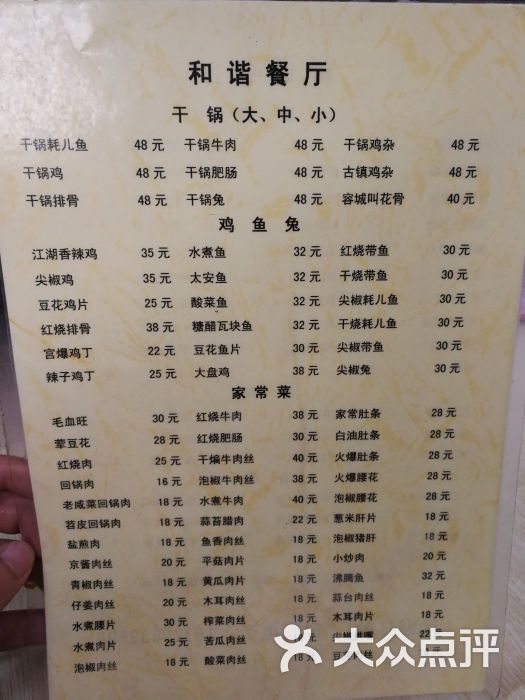 和谐餐厅
干 锅（大、中、小）
干锅耗儿鱼 48 元 干锅牛肉 48 元 干锅鸡杂 48 元
干锅鸡 48 元 干锅肥肠 48 元 古镇鸡杂 48 元
干锅排骨 48 元 干锅兔 48 元 容城叫花骨 40 元
鸡 鱼 兔
江湖香辣鸡 35 元 水煮鱼 32 元 红烧带鱼 30 元
尖椒鸡 35 元 太安鱼 32 元 干烧带鱼 30 元
豆花鸡片 25 元 酸菜鱼 32 元 尖椒耗儿鱼 30 元
红烧排骨 38 元 糖醋瓦块鱼 32 元 干烧耗儿鱼 30 元
宫爆鸡丁 22 元 豆花鱼片 30 元 尖椒带鱼 30 元
辣子鸡丁 25 元 大盘鸡 38 元 尖椒兔 30 元
家常菜
毛血旺 30 元 红烧牛肉 38 元 家常肚条 28 元
荤豆花 28 元 红烧肥肠 30 元 白油肚条 28 元
红烧肉 25 元 干煸牛肉丝 40 元 火爆肚条 28 元
回锅肉 16 元 泡椒牛肉丝 38 元 火爆腰花 28 元
老咸菜回锅肉 18 元 水煮牛肉 40 元 泡椒腰花 28 元
苕皮回锅肉 18 元 蒜苔腊肉 22 元 葱米肝片 18 元
盐煎肉 18 元 鱼香肉丝 18 元 泡椒猪肝 18 元
京酱肉丝 20 元 平菇肉片 18 元 小炒肉 20 元
青椒肉丝 18 元 黄瓜肉片 18 元 沸腾鱼 32 元
仔姜肉丝 20 元 木耳肉丝 18 元 蒜台肉丝 18 元
水煮腰片 30 元 榨菜肉丝 18 元 木耳肉片 18 元
水煮肉片 25 元 苦瓜肉丝 18 元 尖椒 22
泡椒肉丝 18 元 酸菜肉丝 18 元 豆 肉丝 元
大众点评